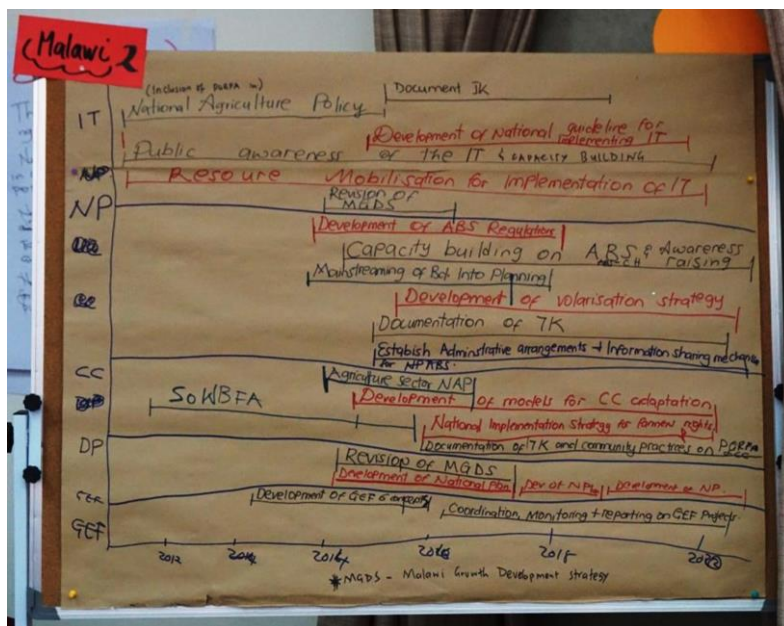 Malawi 2
(Inclusion of PGRFA in)
Document IK
IT
National Agriculture Policy
Development of National guideline for
implementing IT
Public awareness of the IT & CAPACITY BUILDING
NP
Resoure Mobilisation for Implementation of IT
NP
Revision of
MGDS
Development of ABS Regulations
Capacity building on ABS & Awareness
raising
Mainstreaming of Into Planning
Development of volarisation strategy
Documentation of TK
Estabish Adminstrative arrangements + Information sharing mechanism
for NP ABS.
CC
Agriculture sector NAP
Development of models for CC adaptation
SoWBFA
National Implementation Strategy for farmers rights
DP
Documentation of TK and community practises on PGRFA
Revision of MGDS
Development of National Plan
Dev of NP
Development of NP.
GEF
Development of GEF 6
Coordination, Monitoring + reporting on GEF Projects.
GEF
2012
2018
*MGDS - Malawi Growth Development strategy